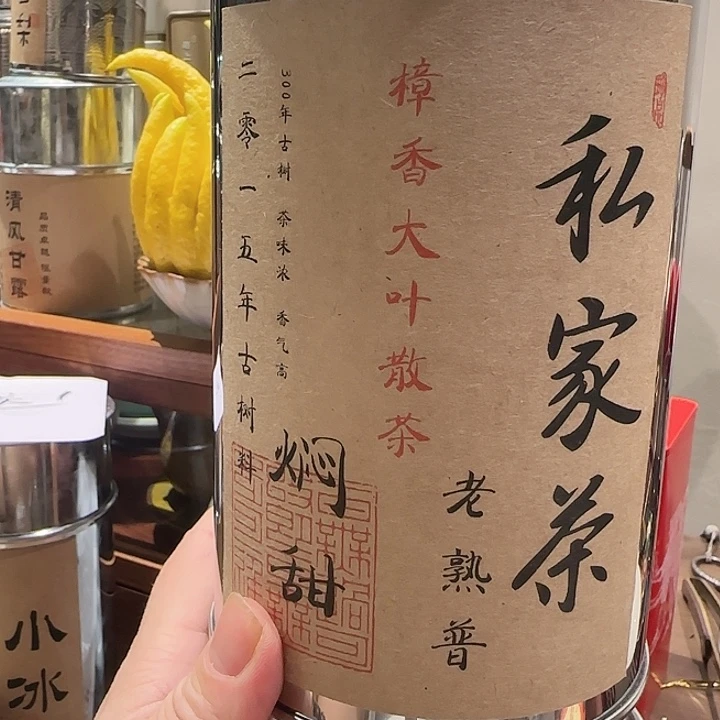 私家茶
老熟普
樟香大叶散茶
焖甜
300年古树 茶味浓 香气高
二零一五年古树料
清风甘露
小冰